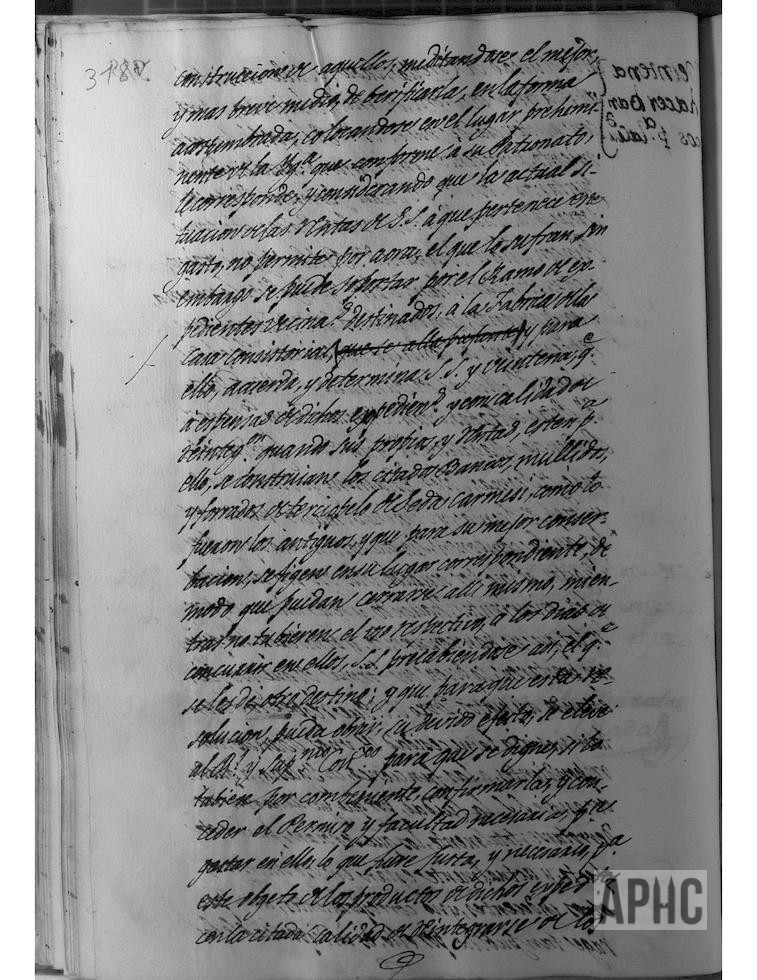 3180.
construccion de aquellos, meditandose el mejor,
y mas breve medio, de berificarla, en la forma
acostumbrada, colocandose en el lugar prehemi-
nente de la Yg.ª que conforme a su Patronato
le corresponde; y considerando que la actual si-
tuacion de las Rentas de S.S. à que pertenece este
gasto, no permite por aora, el que lo sufran, sin
embargo se puede soportar por el Ramo de ex-
pedientes vecina.s destinados, à la Fabrica de las
Casas Consistoriales, (que se alla pendiente) y para
ello, acuerda, y determina S.S. y Veintena, q.e
a espensas de dichos expedien.s y con calidad de
reinteg.on quando sus propios, y Rentas, esten p.a
ello, se construian los citados Bancos, mullidos,
y forrados de terciopelo de seda carmesi, como lo
fueron los antiguos, y que para su mejor conser-
bacion, se figen en su lugar correspondiente, de
modo que puedan cerrarse alli mismo, mien-
tras no tubieren el uso respectivo, a los dias de
concurrir en ellos, S.S. precabiendose asi, el q.e
se les dé otro destino; y que para que esta re-
solucion, pueda obrar su devido efecto, se eleve
al R.l y Sup.mo Cons.o para que se digne, si lo
tubiere por combeniente, confirmarla, y con-
ceder el Permiso y facultad necesaria, p.a
gastar en ello, lo que fuere justo, y necesario, p.a
este objeto de los productos de dichos exped.s
con la citada calidad de Reintegrarse de los
APHC